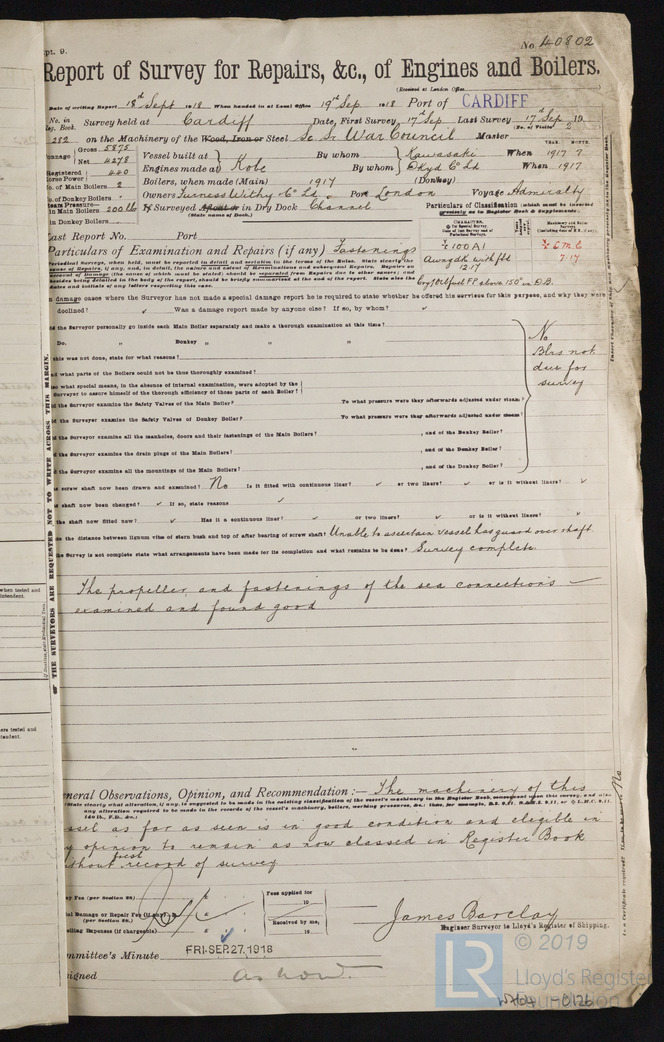 Rpt. 9.
No. 40802
Report of Survey for Repairs, &c., of Engines and Boilers.
(Received at London Office
Date of writing Report 18th Sept 1918 When handed in at Local Office 19th Sep 1918 Port of CARDIFF
No. in Reg. Book. Survey held at Cardiff Date, First Survey 17th Sep Last Survey 17th Sep 19
(No. of Visits 2
282 on the Machinery of the Wood, Iron or Steel Sc Sr War Council Master
Tonnage Gross 5875 Net 4278
Vessel built at Kobe By whom Kawasaki When 1917 7
YEAR. MONTH.
Registered Horse Power 440 Engines made at By whom DKyd Co Ld When 1917
No. of Main Boilers 2 Boilers, when made (Main) 1917 (Donkey)
No. of Donkey Boilers Owners Furness Withy & Co Ld Port London Voyage Admiralty
Steam Pressure in Main Boilers 200 lb If Surveyed Afloat or in Dry Dock Channel
(State name of Dock.)
in Donkey Boilers
Particulars of Classification (which must be inserted precisely as in Register Book & Supplements.
Last Report No. Port
Particulars of Examination and Repairs (if any) Fastenings
100A1
Awng dk with fbd
12.17
LMC
7.17
Periodical Surveys, when held, must be reported in detail and seriatim in the terms of the Rules. State clearly the
cause of Repairs, if any, and, in detail, the nature and extent of Examinations and subsequent Repairs. Repairs on
account of Damage (the cause of which must be stated) should be separated from Repairs due to other causes; and
besides being detailed in the body of the report, should be briefly summarised at the end of the report. State also the
Dates and initials of any letters respecting this case.
Oil fuel FP above 150° in D.B.
In damage cases where the Surveyor has not made a special damage report he is required to state whether he offered his services for this purpose, and why they were
declined? ✓ Was a damage report made by anyone else? If so, by whom? ✓
Did the Surveyor personally go inside each Main Boiler separately and make a thorough examination at this time?
Do. " Donkey " " "
If this was not done, state for what reasons?
And what parts of the Boilers could not be thus thoroughly examined?
Also what special means, in the absence of internal examination, were adopted by the
Surveyor to assure himself of the thorough efficiency of those parts of each Boiler?
No
Blrs not
due for
survey
Did the Surveyor examine the Safety Valves of the Main Boiler? To what pressure were they afterwards adjusted under steam?
Did the Surveyor examine the Safety Valves of Donkey Boiler? To what pressure were they afterwards adjusted under steam?
Did the Surveyor examine all the manholes, doors and their fastenings of the Main Boilers? , and of the Donkey Boiler?
Did the Surveyor examine the drain plugs of the Main Boilers? , and of the Donkey Boiler?
Did the Surveyor examine all the mountings of the Main Boilers? , and of the Donkey Boiler?
Has screw shaft now been drawn and examined? No Is it fitted with continuous liner? ✓ or two liners? ✓ or is it without liners? ✓
Has shaft now been changed? ✓ If so, state reasons ✓
Is the shaft now fitted new? ✓ Has it a continuous liner? ✓ or two liners? ✓ or is it without liners? ✓
State the distance between lignum vitæ of stern bush and top of after bearing of screw shaft? Unable to ascertain vessel has guard over shaft
If the Survey is not complete state what arrangements have been made for its completion and what remains to be done? Survey complete
The propeller and fastenings of the sea connections
examined and found good
General Observations, Opinion, and Recommendation :— The machinery of this
(State clearly what alteration, if any, is suggested to be made in the existing classification of the vessel's machinery in the Register Book, consequent upon this survey, and also
any alteration required to be made in the records of the vessel's machinery, boilers, working pressures, &c.; thus, for example, B.S. 9.11, B.&M.S. 9.11, or L.M.C. 9.11,
140 lb., F.D., &c.)
vessel as far as seen is in good condition and elegible in
my opinion to remain as now classed in Register Book
without fresh record of survey
Survey Fee (per Section 28)
Special Damage or Repair Fee (if any)
(per Section 28.)
Travelling Expenses (if chargeable)
Fees applied for
19
Received by me,
19
James Barclay
Engineer Surveyor to Lloyd's Register of Shipping.
Committee's Minute FRI. SEP. 27. 1918
Assigned As now.
THE SURVEYORS ARE REQUESTED NOT TO WRITE ACROSS THIS MARGIN.
© 2019
LR
Lloyd's Register
Foundation
W404-0126